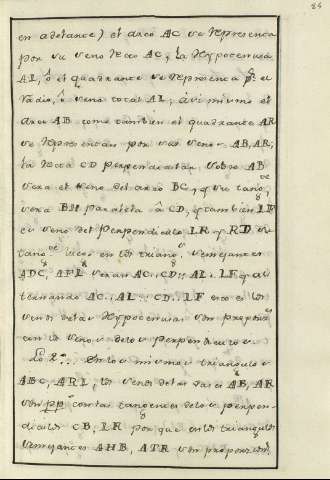 24
en adelante) el arco AC se representa
por su seno recto AC, la Hypotenusa
AL, ô el quadrante se representa pr. el
radio, ô seno total AL; asi mismo el
arco AB como tambien el quadrante AR
se representan por sus senos AB, AR;
la recta CD perpendicular sobre AB
sera el seno del arco BC, y su tang.te
sera BH paralela â CD, y tambien LF
es seno del perpendiculo LR y RD su
tang.te luego en los triang.s semejantes
ADC, AFL seran AC.. CD:: AL.. LF y al
ternando AC.. AL.. CD.. LF esto es los
senos de las Hypotenusas son proporc.s
con los senos de los perpendiculos
Lo 2.o En los mismos triangulos
ABC, ARL, los senos de las bases AB, AR
son pp.s con las tangentes de los perpen-
diculos CB, LR por que en los triangulos
semejantes AHB, ATR son proporcion.s